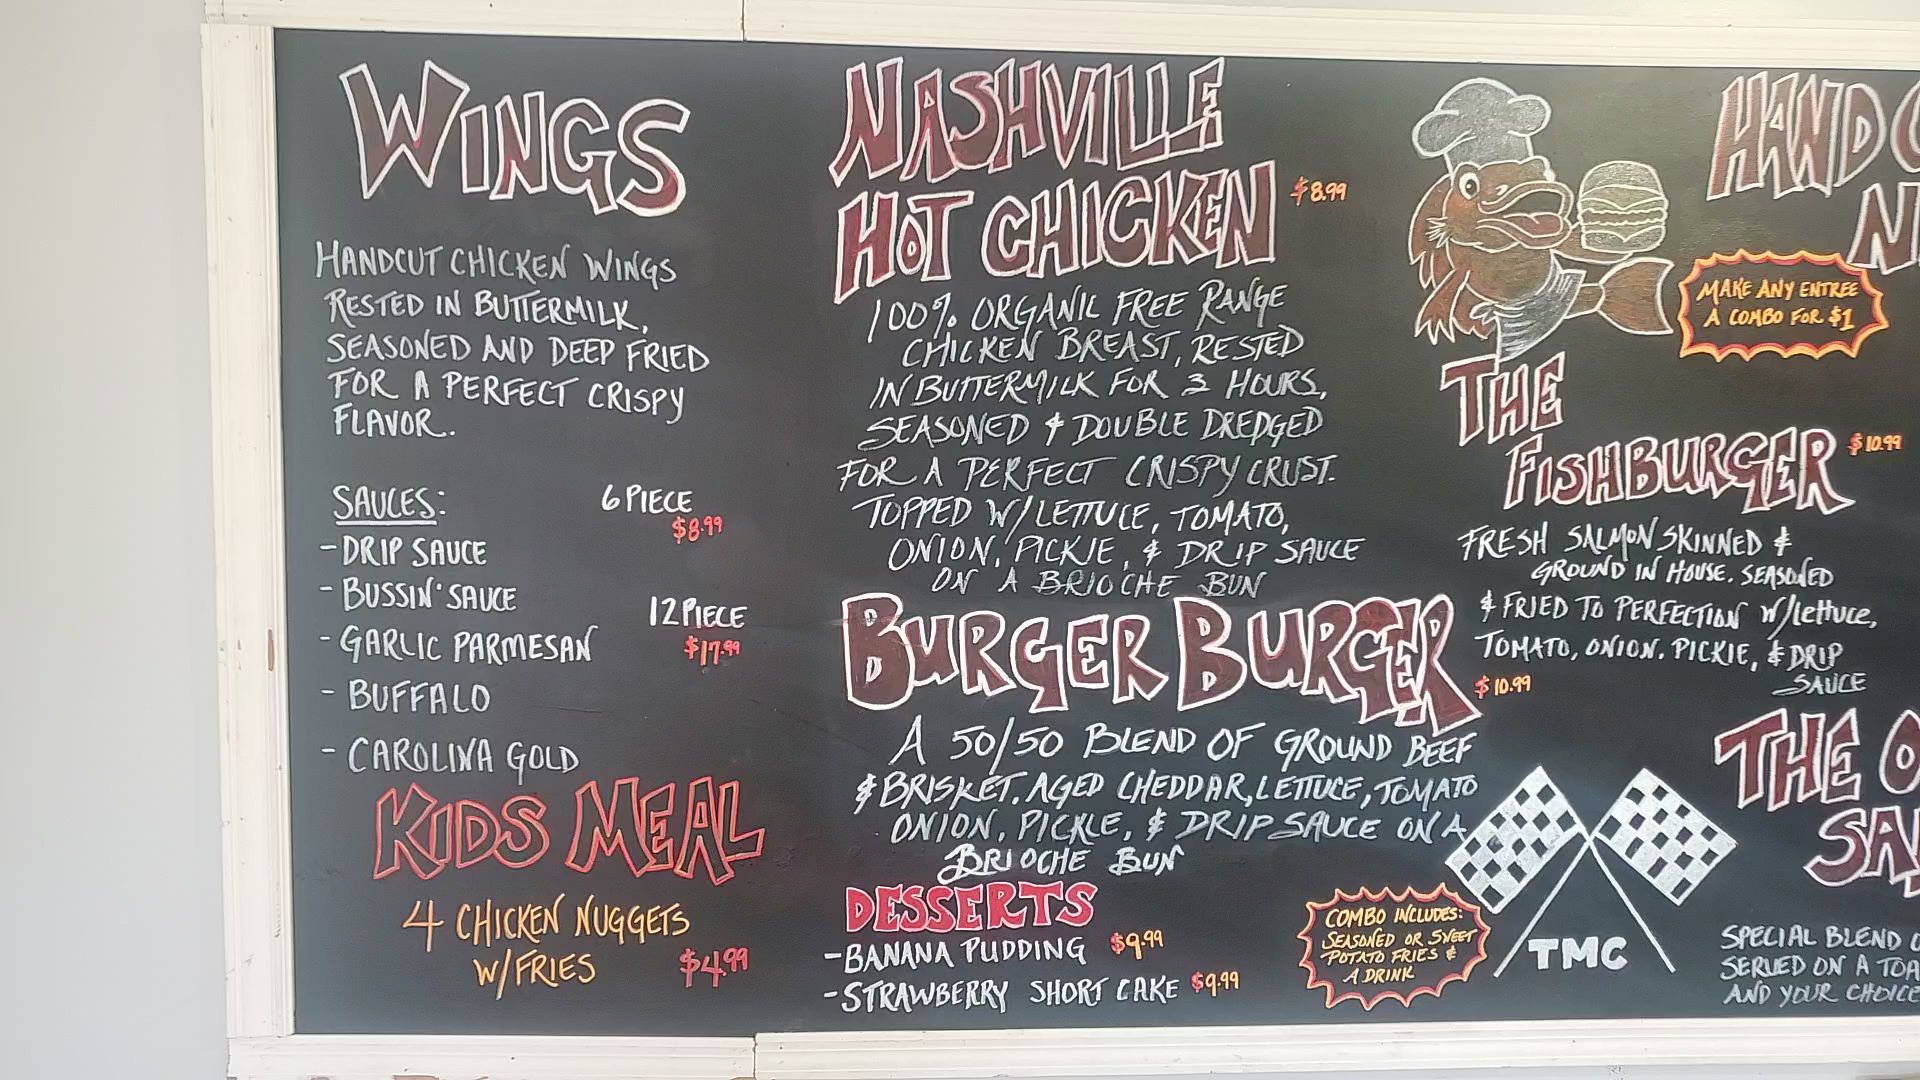 WINGS
HANDCUT CHICKEN WINGS
RESTED IN BUTTERMILK,
SEASONED AND DEEP FRIED
FOR A PERFECT CRISPY
FLAVOR.
SAUCES:
- DRIP SAUCE
- BUSSIN' SAUCE
- GARLIC PARMESAN
- BUFFALO
- CAROLINA GOLD
6 PIECE
$8.99
12 PIECE
$17.99
KIDS MEAL
4 CHICKEN NUGGETS
W/FRIES $4.99
NASHVILLE
HOT CHICKEN $8.99
100% ORGANIC FREE RANGE
CHICKEN BREAST, RESTED
IN BUTTERMILK FOR 3 HOURS,
SEASONED & DOUBLE DREDGED
FOR A PERFECT CRISPY CRUST.
TOPPED W/LETTUCE, TOMATO,
ONION, PICKLE, & DRIP SAUCE
ON A BRIOCHE BUN
BURGER BURGER
$10.99
A 50/50 BLEND OF GROUND BEEF
& BRISKET. AGED CHEDDAR, LETTUCE, TOMATO
ONION, PICKLE, & DRIP SAUCE ON A
BRIOCHE BUN
DESSERTS
- BANANA PUDDING $9.99
- STRAWBERRY SHORT CAKE $9.99
COMBO INCLUDES:
SEASONED OR SWEET
POTATO FRIES &
A DRINK
HAND
MAKE ANY ENTREE
A COMBO FOR $1
THE
FISHBURGER $10.99
FRESH SALMON SKINNED &
GROUND IN HOUSE. SEASONED
& FRIED TO PERFECTION W/lettuce,
TOMATO, ONION. PICKLE, & DRIP
SAUCE
TMC
THE
SPECIAL BLEND
SERVED ON A
AND YOUR CHOICE